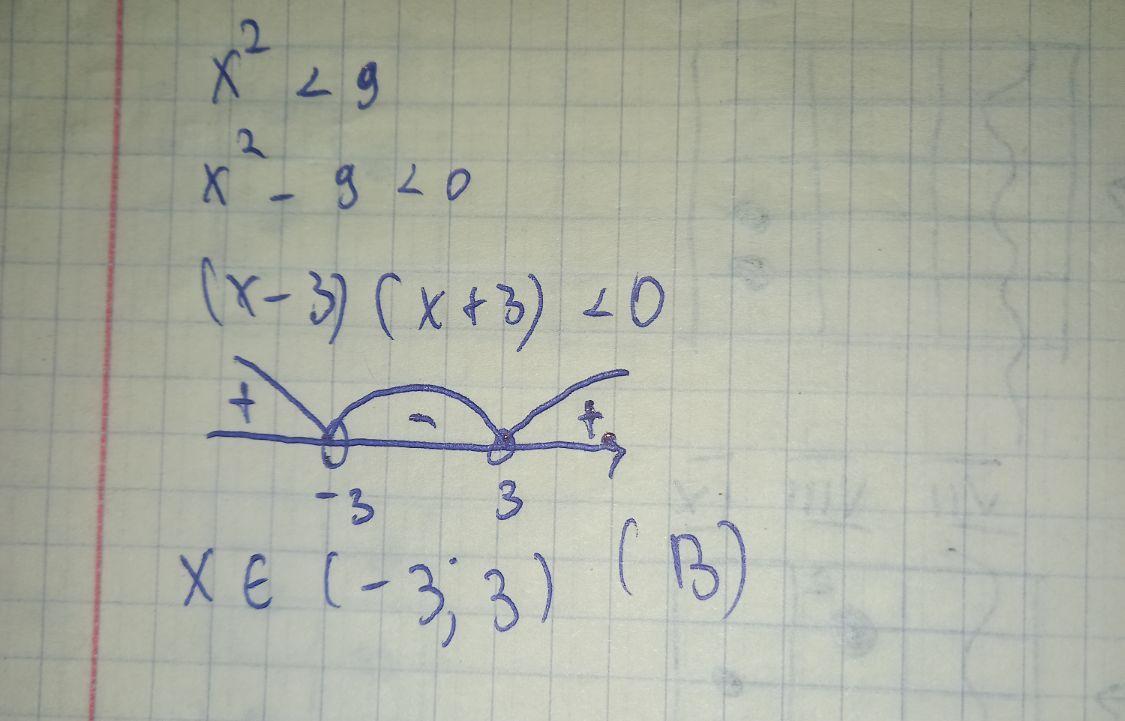 x² < 9
x² - 9 < 0
(x-3) (x+3) < 0
+ - +
-3 3
x ∈ (-3; 3) (B)